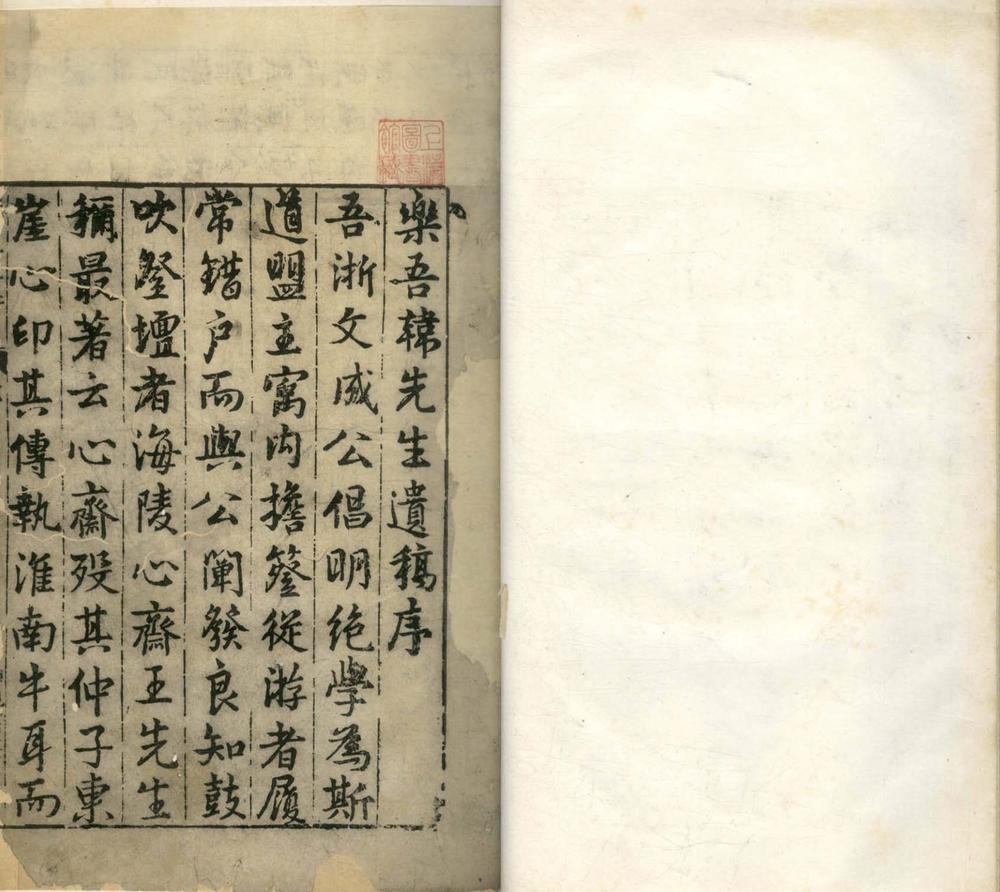 樂吾韓先生遺稿序
吾浙文成公倡明絕學爲斯
道盟主寓内擔簦從游者履
常錯户而與公闡發良知鼓
吹登壇者海陵心齋王先生
稱最著云心齋歿其仲子東
崖心印其傳執淮南牛耳而
上海
圖書
館藏